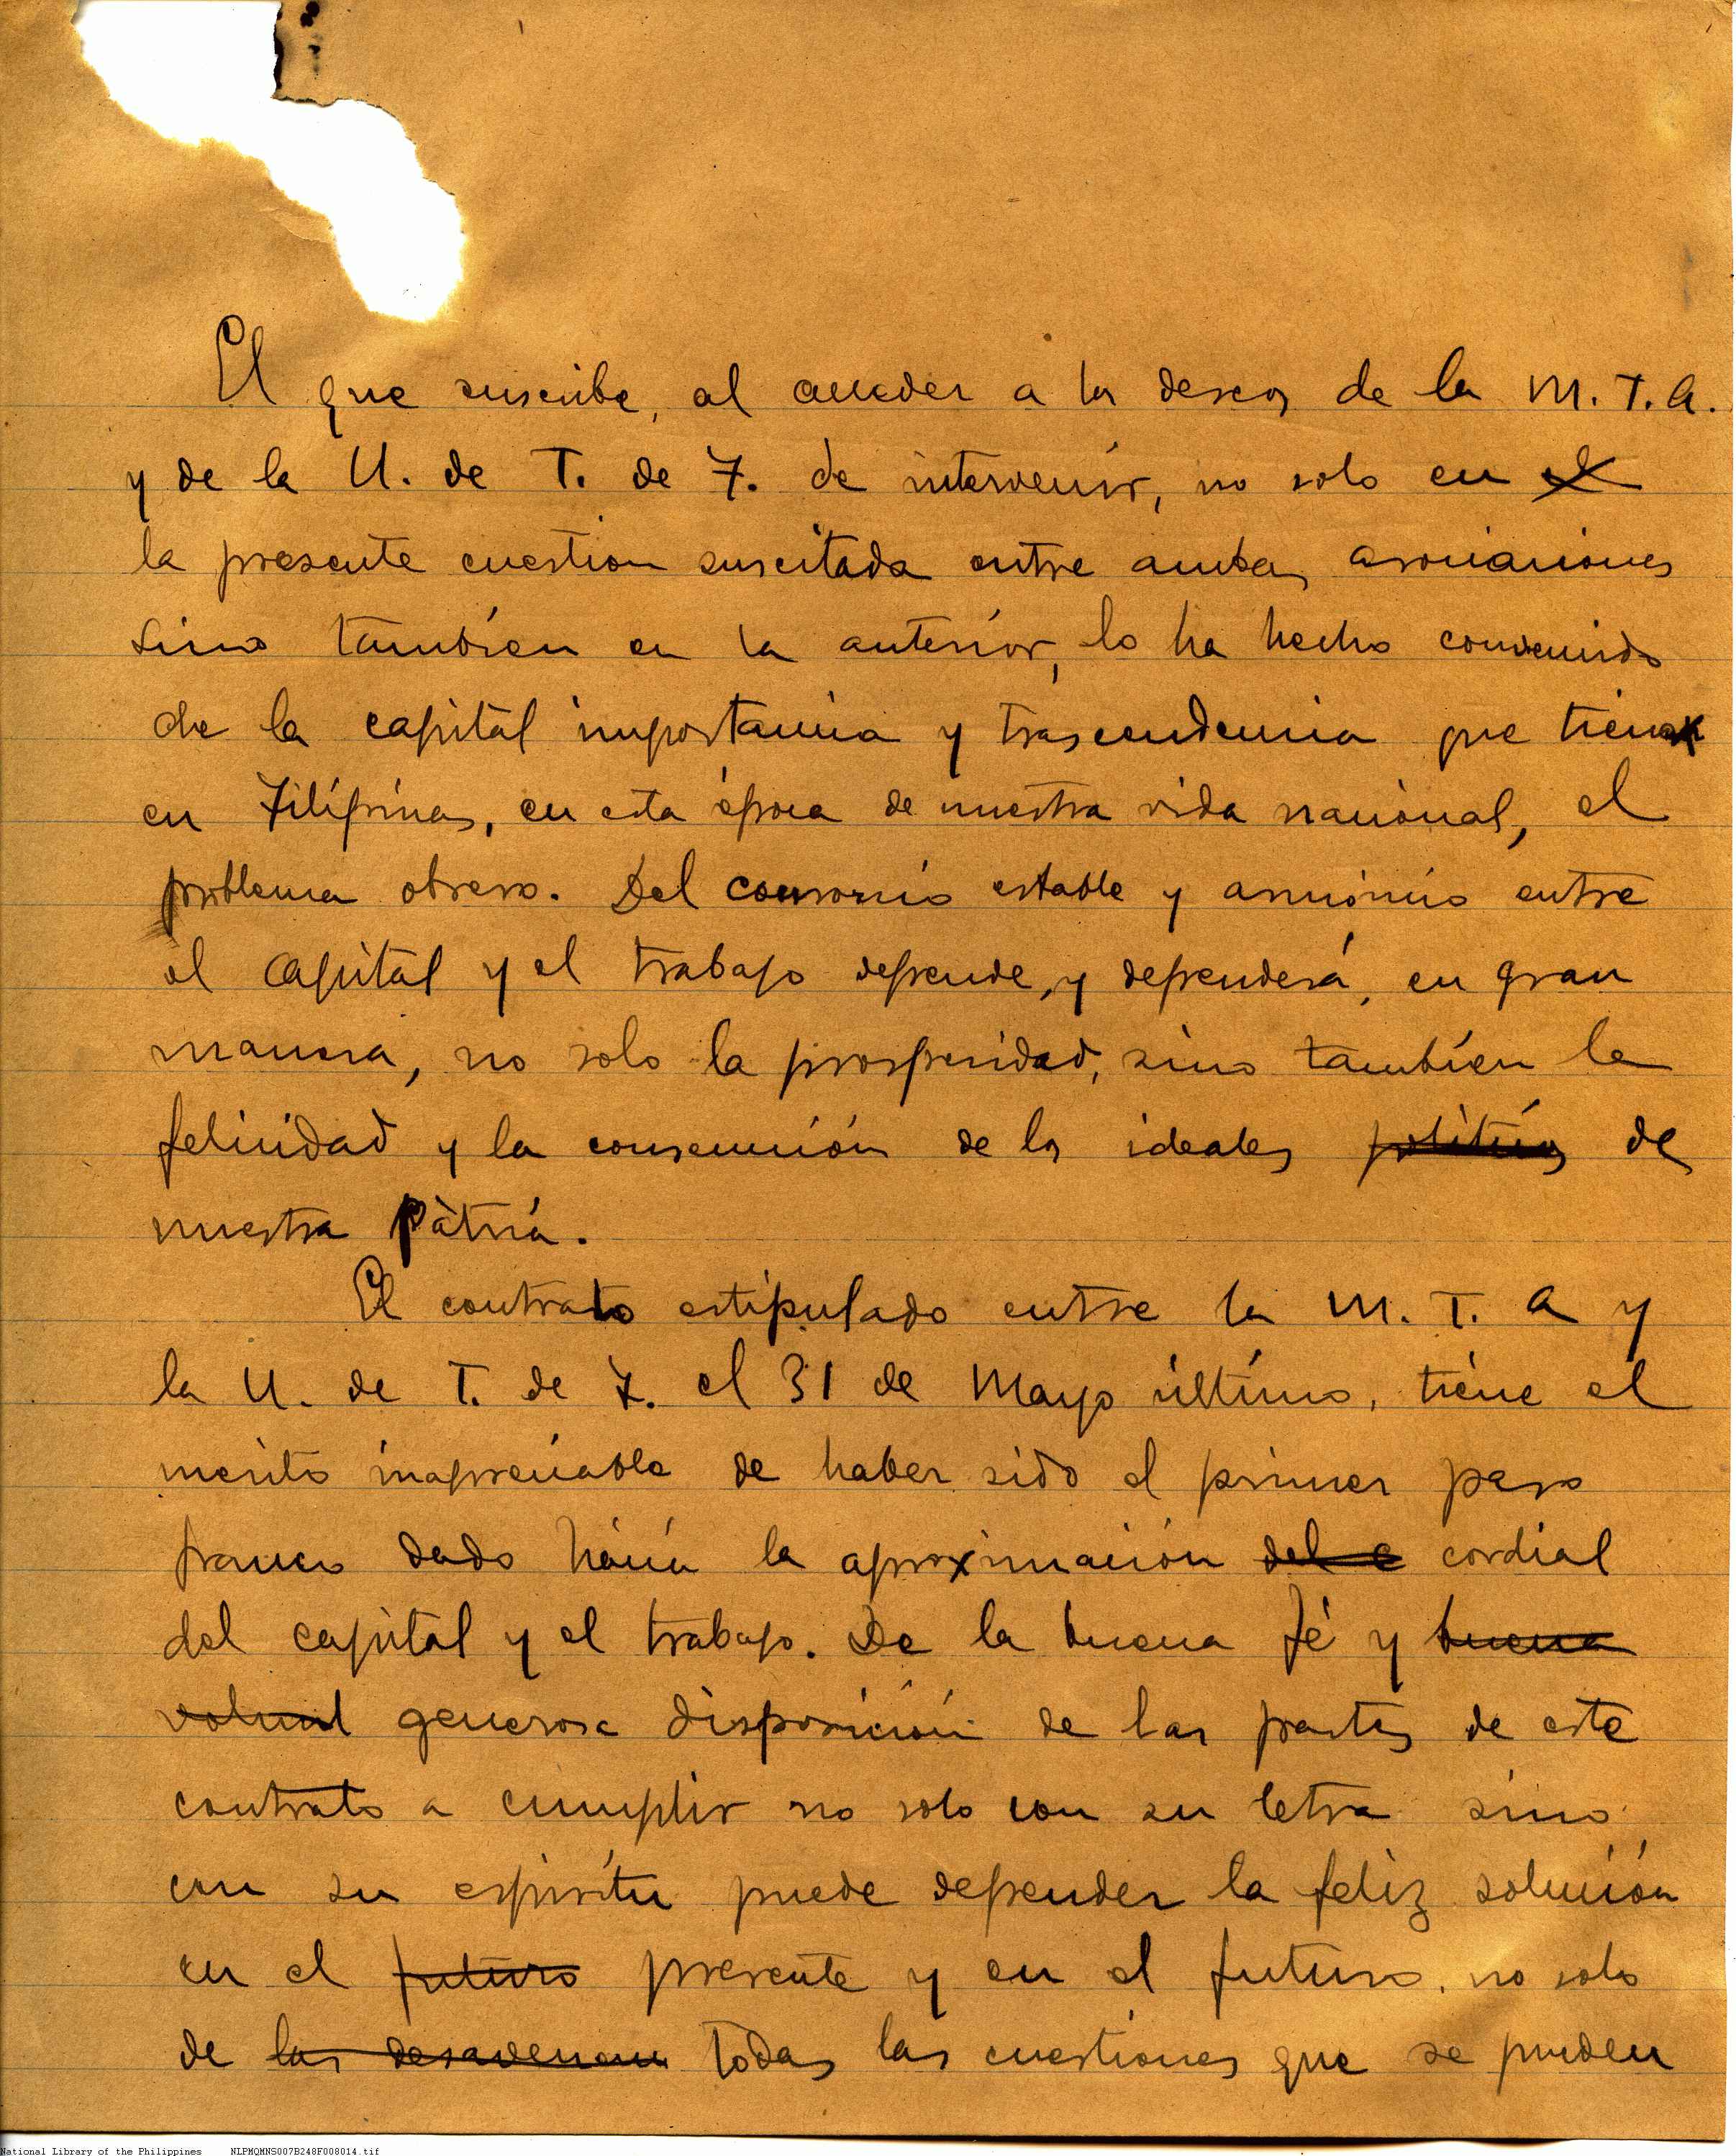 El que suscribe, al acceder a los deseos de la M. T. A.
y de la U. de T. de F. de intervenir, no solo en el
la presente cuestion suscitada entre ambas asociaciones
sino también en la anterior, lo ha hecho convencido
de la capital importancia y trascendencia que tiene
en Filipinas, en esta época de nuestra vida nacional, el
problema obrero. Del consorcio estable y armónico entre
el capital y el trabajo depende, y dependerá, en gran
manera, no solo la prosperidad, sino también la
felicidad y la consecución de los ideales políticos de
nuestra Pàtria.
El contrato estipulado entre la M. T. A y
la U. de T. de F. el 31 de Mayo último, tiene el
merito inapreciable de haber sido el primer paso
franco dado hácia la aproximación del c cordial
del capital y el trabajo. De la buena fé y buena
volunt generosa disposición de las partes de este
contrato a cumplir no solo con su letra sino
con su espíritu puede depender la feliz solución
en el futuro presente y en el futuro, no solo
de las desavenen todas las cuestiones que se pueden
National Library of the Philippines NLPMQMNS007B248F008014.tif